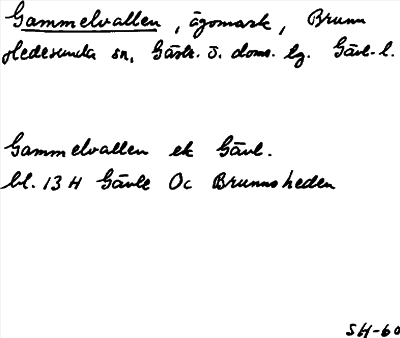 Gammelvallen, ägomark, Brunn
Hedesunda sn, Gästr. ö. doms. lg. Gävl. l.
Gammelvallen ek Gävl.
bl. 13 H Gävle Oc Brunnsheden
SH-60